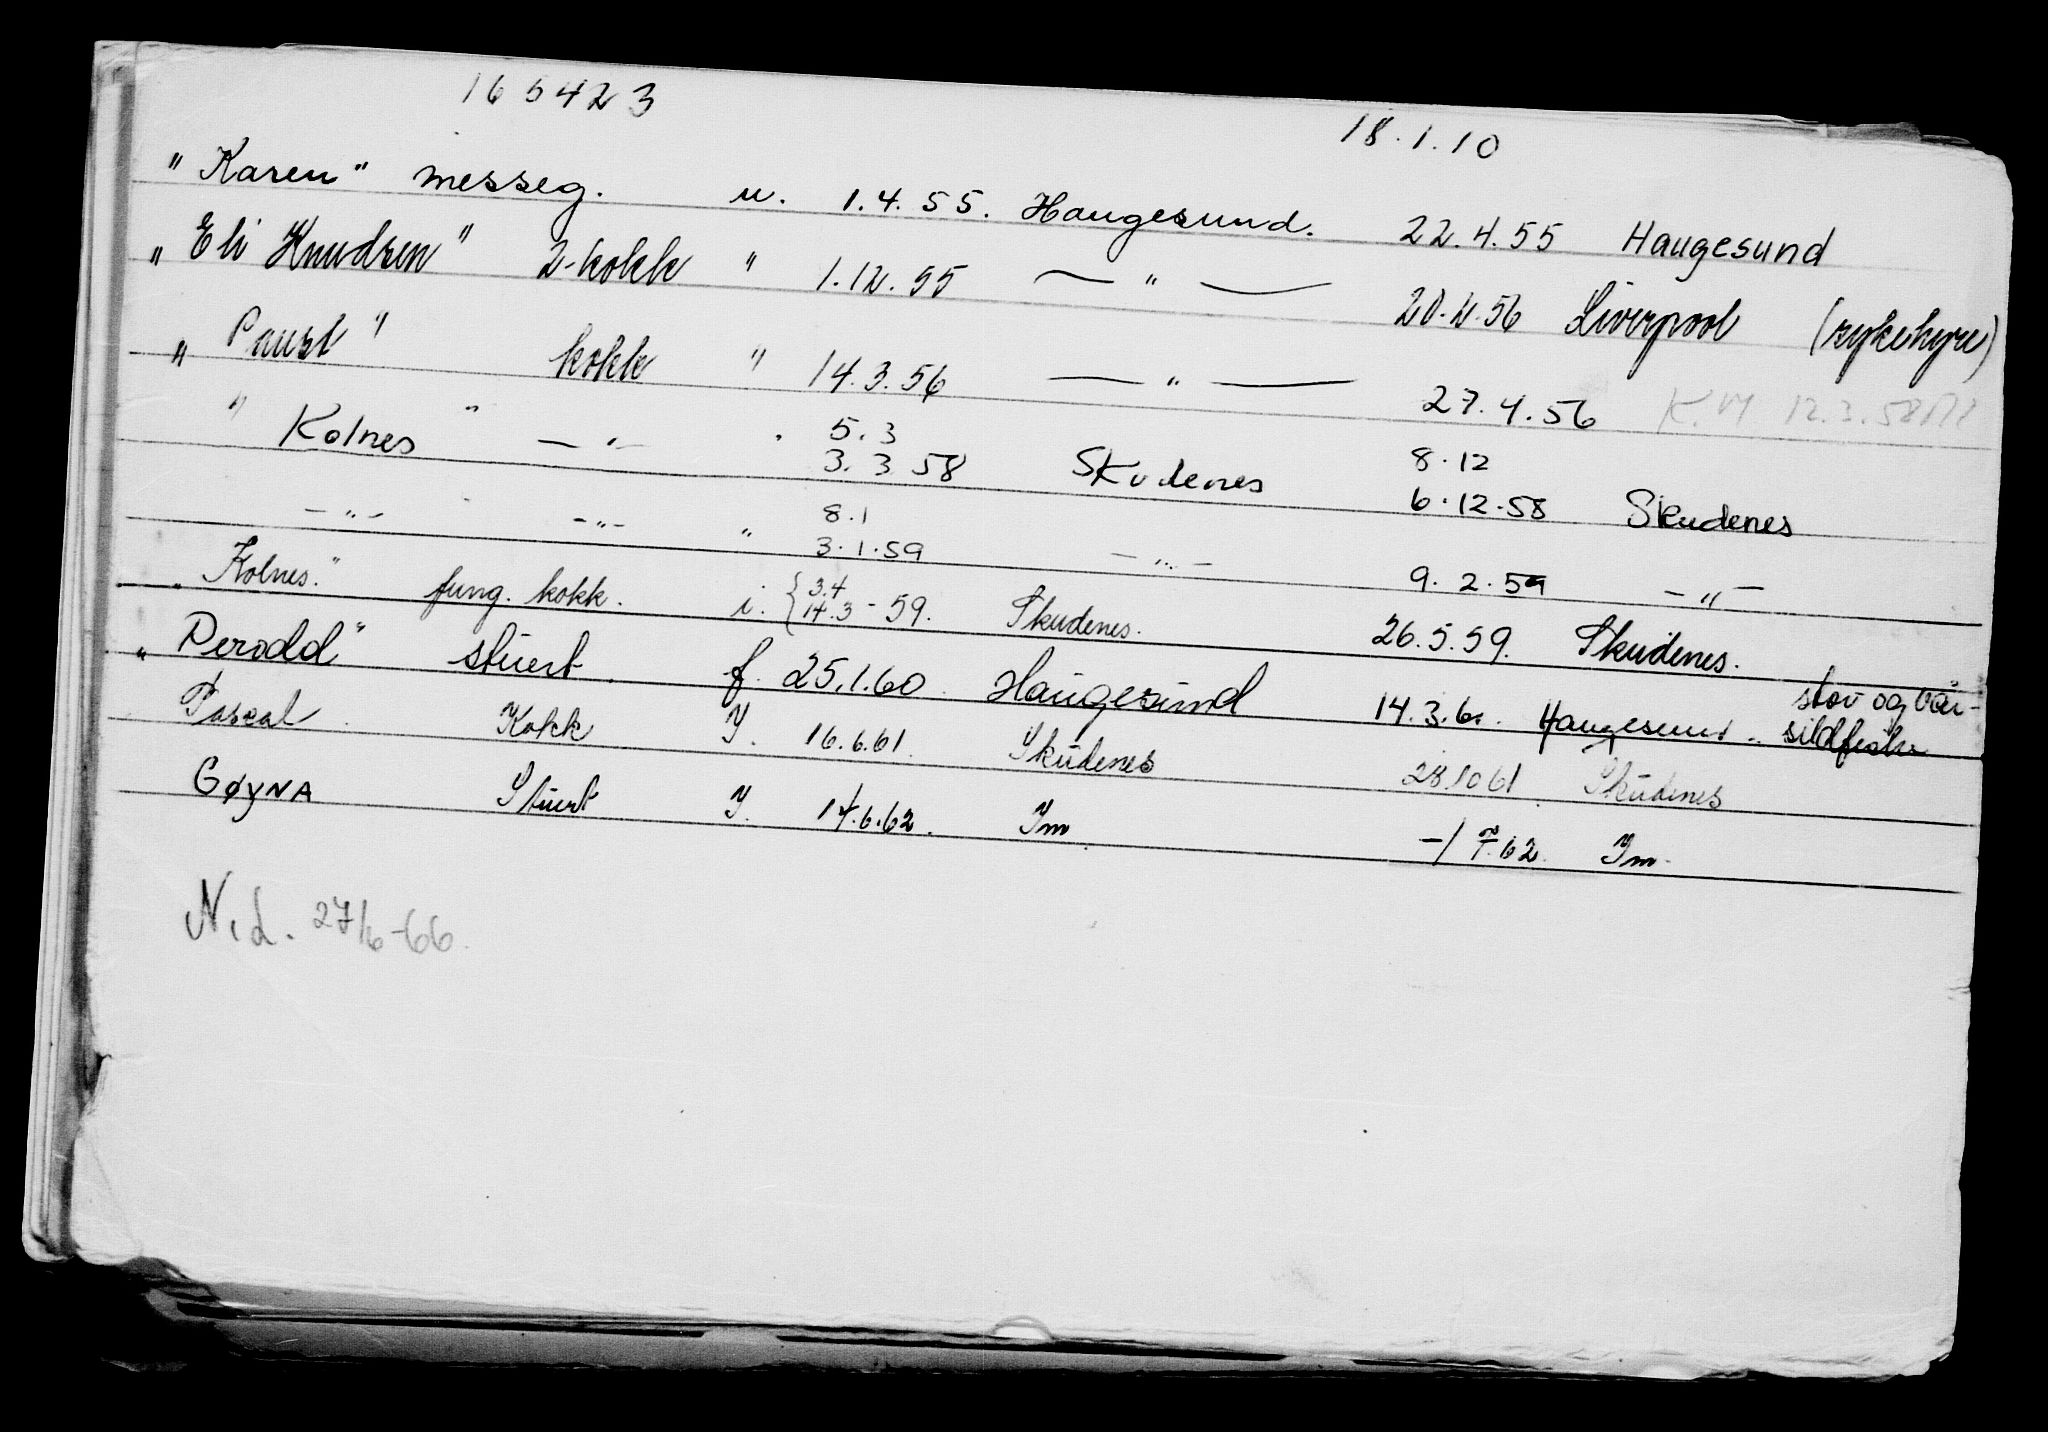 165423 18.1.10
"Karen" messeg. u. 1.4.55. Haugesund. 22.4.55 Haugesund
"Eli Knudsen" 2-kokk " 1.12.55 — " — 20.2.56 Liverpool (sykehyre)
"Paust" kokk " 14.3.56 — " — 27.4.56 12.3.58
" Kolnes " — " — " 5.3 8.12
3.3 58 Skudenes 6.12.58 Skudenes
— " — — " — " 8.1
3.1.59 — " — 9.2.59 — " —
"Kolnes." fung. kokk. i. { 3.4
14.3 - 59. Skudenes. 26.5.59. Skudenes.
"Perodd" stuert. f. 25.1.60. Haugesund 14.3.60. Haugesund. stor og vår-
sildfiske
Pascal. Kokk Y. 16.6.61. Skudenes 28.10 61. Skudenes
GØYNA Stuert Y. 14.6.62. Ym. -/7.62. Ym.
N.d. 27/6-66.